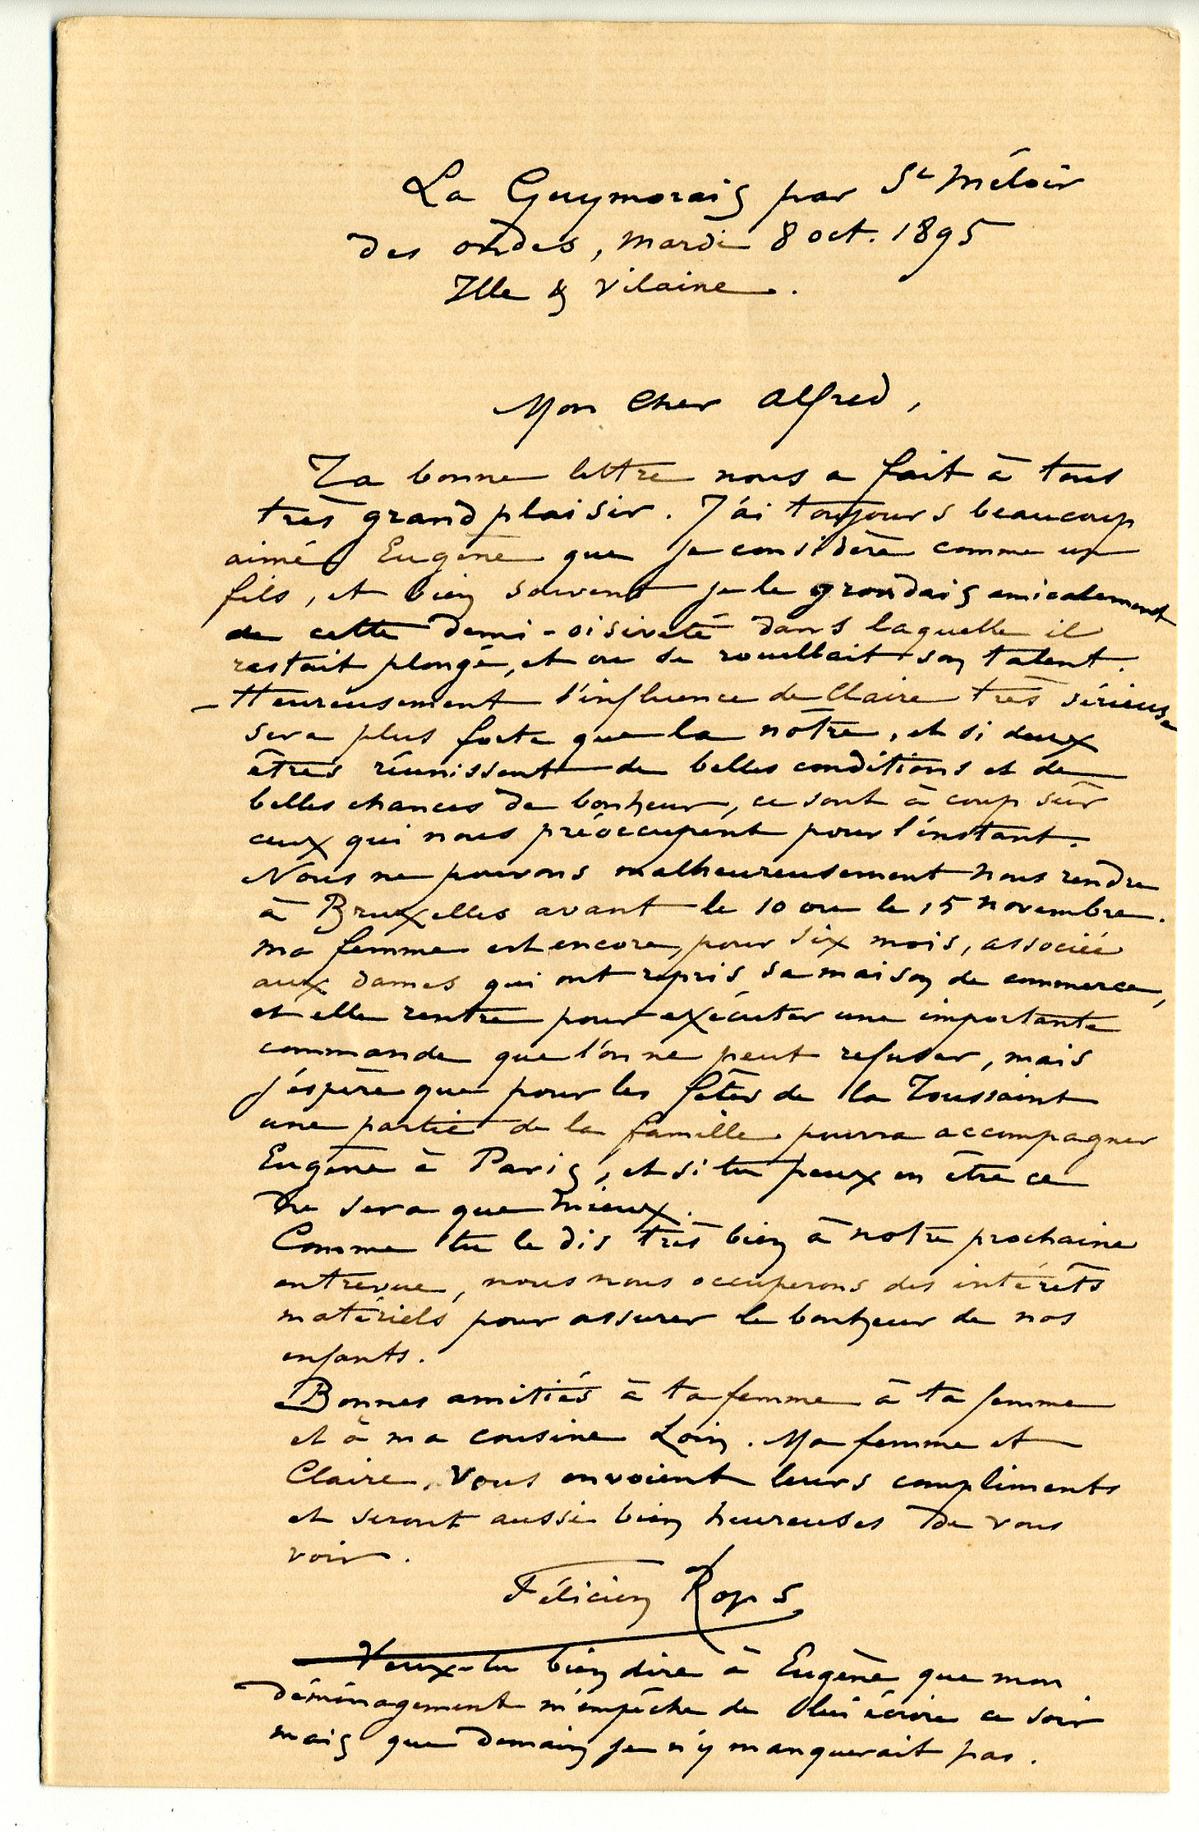 La Guymorais par St Méloir
des ondes, mardi 8 oct. 1895
Ille & Vilaine.
Mon cher Alfred,
Ta bonne lettre nous a fait à tous
très grand plaisir. J'ai toujours beaucoup
aimé Eugène que je considère comme un
fils, et bien souvent je le grondais amicalement
de cette demi-oisiveté dans laquelle il
restait plongé, et ou se rouillait son talent.
– Heureusement l'influence de Claire très sérieuse
sera plus forte que la notre, et si deux
êtres réunissent de belles conditions et de
belles chances de bonheur, ce sont à coup sûr
ceux qui nous préoccupent pour l'instant.
Nous ne pouvons malheureusement nous rendre
à Bruxelles avant le 10 ou le 15 novembre.
Ma femme est encore, pour six mois, associée
aux dames qui ont repris sa maison de commerce,
et elle rentre pour exécuter une importante
commande que l'on ne peut refuser, mais
j'espère que pour les fêtes de la Toussaint
une partie de la famille pourra accompagner
Eugène à Paris, et si tu peux en être ce
ne sera que mieux.
Comme tu le dis très bien à notre prochaine
entrevue, nous nous occuperons des intérêts
matériels pour assurer le bonheur de nos
enfants.
Bonnes amitiés à ta femme à ta femme
et à ma cousine Loin. Ma femme et
Claire, vous envoient leurs compliments
et seront aussi bien heureuses de vous
voir.
Félicien Rops
Veux-tu bien dire à Eugène que mon
déménagement m'empêche de lui écrire ce soir
mais que demain je n'y manquerait pas.